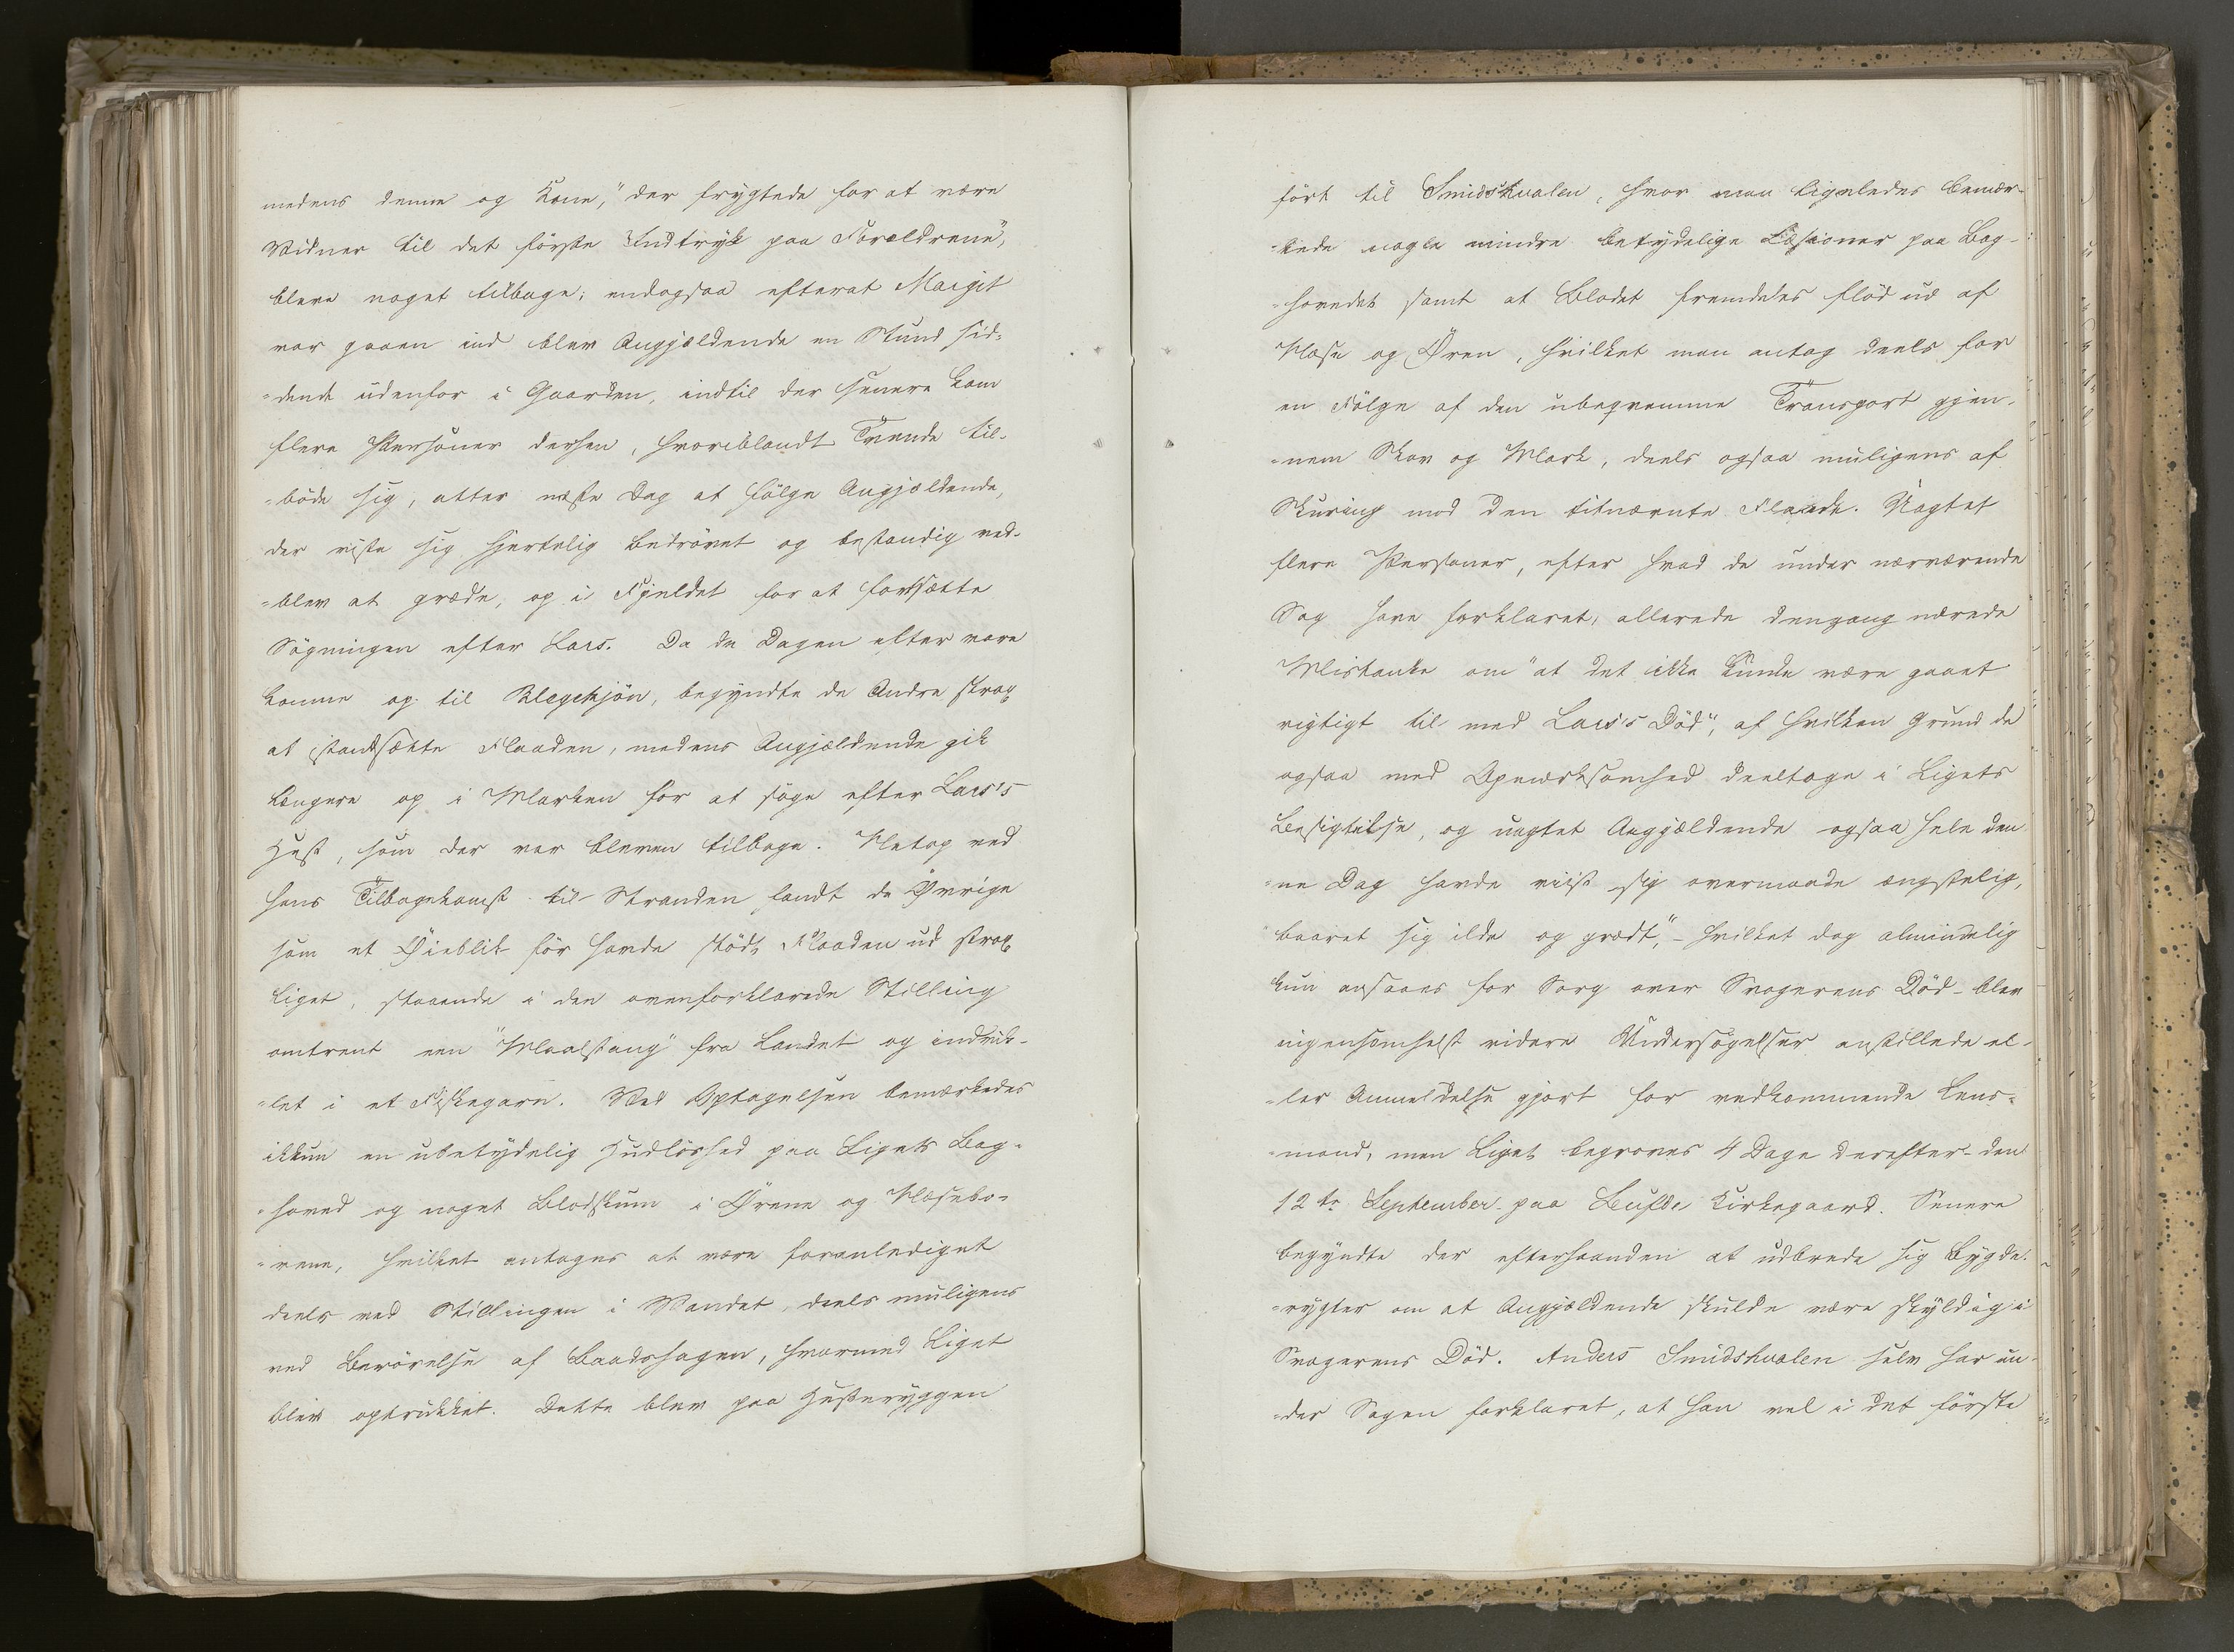 medens denne og Kone, "der frygtede for at være
Vidner til det første Indtryk paa Forældrene",
bleve noget tilbage; endogsaa efterat Margit
var gaaen ind blev Angjældende en Stund sid-
-dende udenfor i Gaarden, indtil der senere kom
flere Personer dersen, hvoriblandt Tvende til-
-böde sig, atter næste Dag at følge Angjældende,
der viste sig hjertelig bedrövet og bestandig ved-
-blev at græde, op i Fjeldet for at fortsætte
Sögningen efter Lars. Da de Dagen efter vare
komne op til Blegekjön, begyndte de Andre strax
at istandsætte Flaaden, medens Angjældende gik
længere op i Marken for at söge efter Lars's
Hest, som der var bleven tilbage. Netop ved
hans Tilbagekomst til Stranden fandt de Øvrige
som et Øieblik för havde stödt Flaaden ud strax
Liget, staaende i den ovenforklarede Stilling
omtrent een "Maalstang" fra Landet og indvik-
-let i et Fiskegarn. Ved Optagelsen bemærkedes
ikkun en ubetydelig Hudlöshed paa Ligets Bag-
-hoved og noget Blodskum i Ørene og Næsebo-
-rene, hvilket antages at være foranlediget
deels ved Stillingen i Vandet, deels muligens
ved Berörelse af Baadshagen, hvormed Liget
blev optrukket. Dette blev paa Hesteryggen
fört til Smidskvalen, hvor man ligeledes bemær-
-kede nogle mindre betydelige Læsioner paa Bag-
-hovedet samt at Blodet fremdeles flöd ud af
Næse og Øren, hvilket man antog deels for
en Fölge af den ubeqvemme Transport gjen-
-nem Skov og Mark, deels ogsaa muligens af
Skuring mod den titnævnte Flaade. Uagtet
flere Personer, efter hvad de under nærværende
Sag have forklaret, allerede dengang nærede
Mistanke om "at det ikke kunde være gaaet
rigtigt til med Lars's Död", af hvilken Grund de
ogsaa med Opmærksomhed deeltoge i Ligets
Besigtelse, og uagtet Angjældende ogsaa hele den
-ne Dag havde viist sig overmaade ængstelig,
"baaret sig ilde og grædt", - hvilket dog almindelig
kun ansaaes for Sorg over Svogerens Död - blev
ingensomhelst videre Undersögelser anstillede el-
-ler Anmeldelse gjort for vedkommende Lens-
-mand, men Liget begroves 4 Dage derefter - den
12te September - paa Kirkegaard. Senere
begyndte der efterhaanden at udbrede sig Bygde-
-rygter om at Angjældende skulde være skyldig i
Svogerens Död. Anders Smidshvalen selv har un-
-der Sagen forklaret, at han vel i det förste